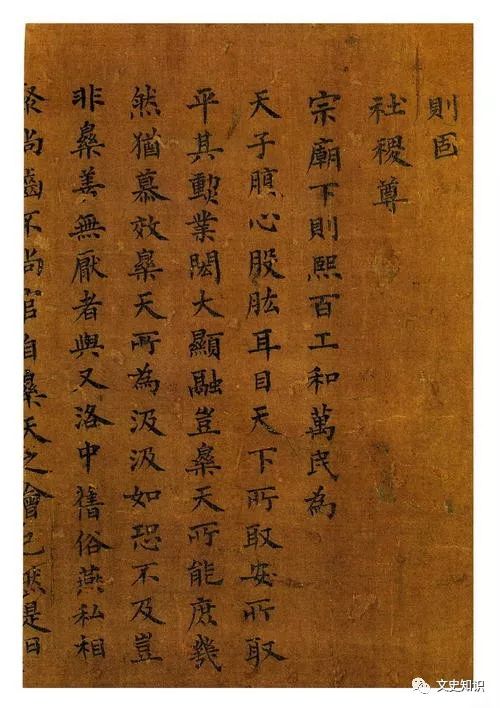 則固
社稷尊
宗廟下則熙百工和萬民為
天子腹心股肱耳目天下所取安所取
平其勳業閎大顯融豈樂天所能庶幾
然猶慕效樂天所為汲汲如恐不及豈
非樂善無厭者與又洛中舊俗燕私相
聚尚齒不尚官自樂天之會已然是日
文史知识